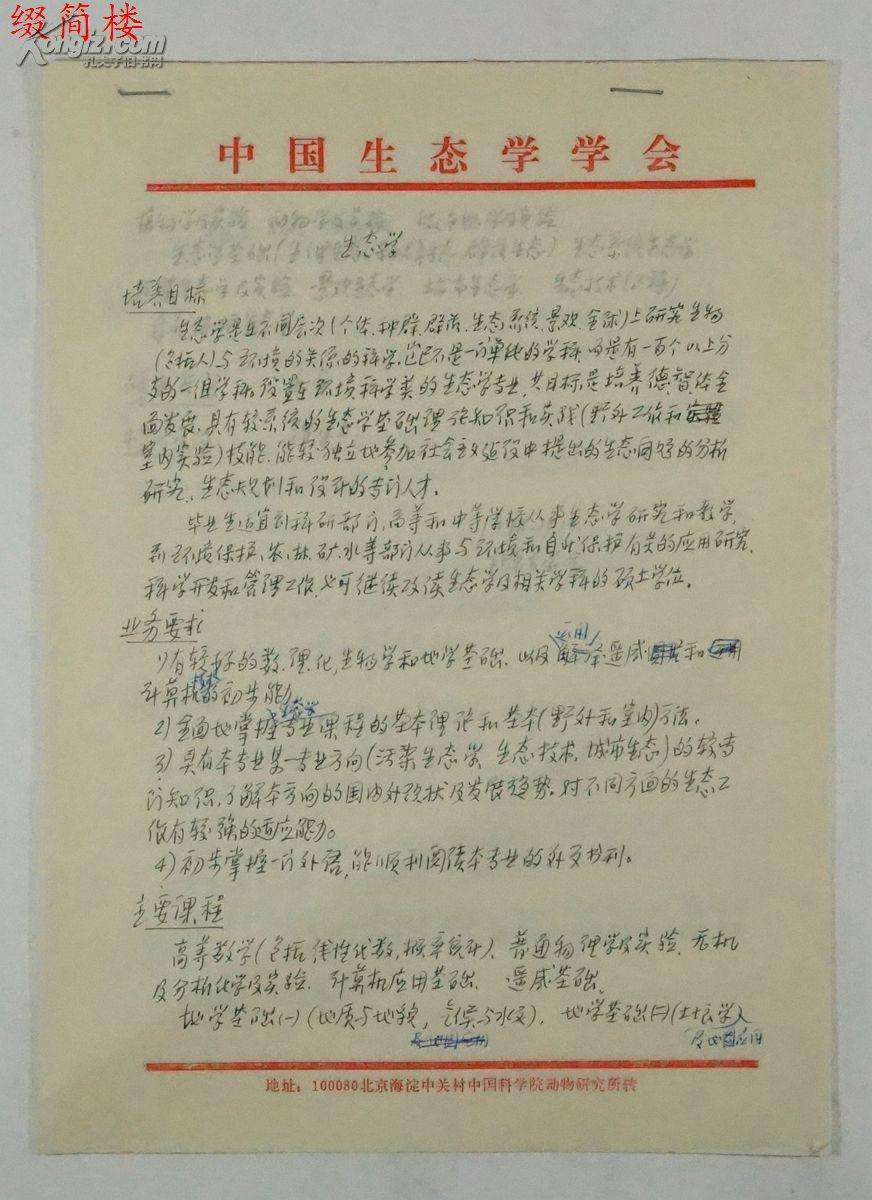 缀简楼
Kongfz.com
孔夫子旧书网
中国生态学学会
生态学
培养目标
生态学是在不同层次(个体、种群、群落、生态系统、景观、全球)上研究生物
(包括人)与环境的关系的科学。它已不是一门单纯的学科,而是有一百个以上分
支的一组学科。设置在环境科学类的生态学专业,其目标是培养德智体全
面发展,具有较系统的生态学基础理论知识和实践(野外工作和
室内实验)技能,能较独立地参加社会主义建设中提出的生态问题的分析
研究、生态规划和设计的专门人才。
毕业生适宜到科研部门,高等和中等学校从事生态学研究和教学,
到环境保护、农、林、矿、水等部门从事与环境和自然保护有关的应用研究、
科学开发和管理工作,也可继续攻读生态学及相关学科的硕士学位。
业务要求
运用
1)有较好的数、理、化、生物学和地学基础,以及解本遥感和
计算机技术的初步能力。
生态学
2)全面地掌握专业课程的基本理论和基本(野外和室内)方法。
3)具有本专业某一专业方向(污染生态学、生态技术、城市生态)的较专
门知识,了解本方向的国内外现状及发展趋势。对不同方面的生态工
作有较强的适应能力。
4)初步掌握一门外语,能顺利阅读本专业的外文书刊。
主要课程
高等数学(包括线性代数,概率统计)、普通物理学及实验、无机
及分析化学及实验、计算机应用基础、遥感基础、
地学基础(一)(地质与地貌,气候与水文)、地学基础(二)(土壤学)
应用
地址:100080北京海淀中关村中国科学院动物研究所转